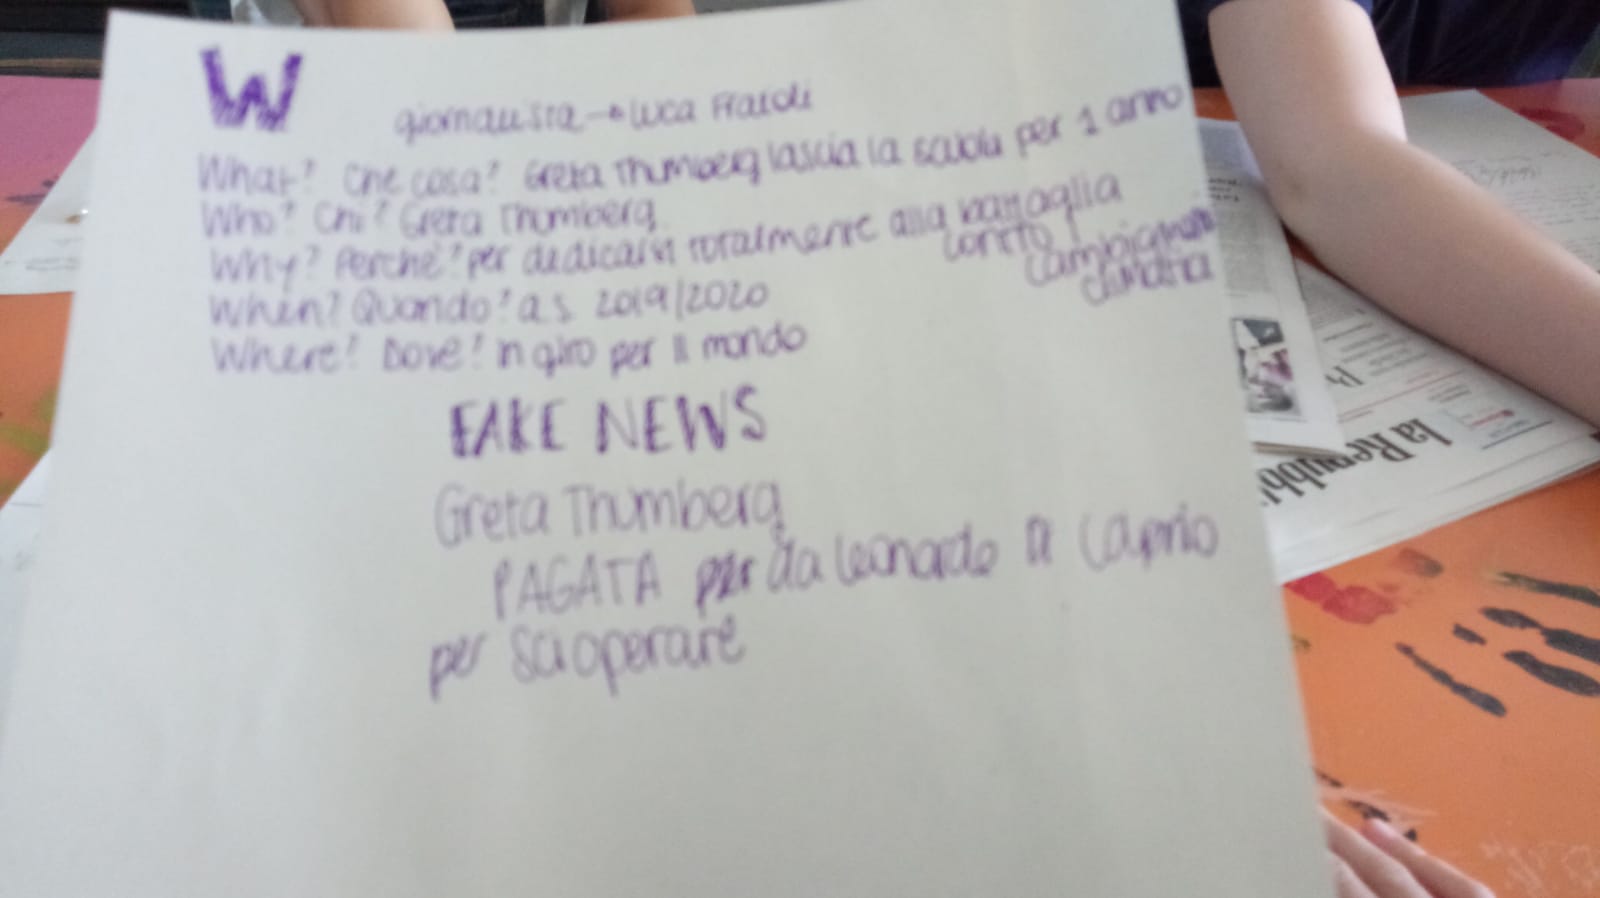 W
giornalista → Luca Fraioli
What? Che cosa? Greta Thumberg lascia la scuola per 1 anno
Who? Chi? Greta Thumberg
Why? Perchè? per dedicarsi totalmente alla battaglia
contro i
cambiamenti
climatici
When? Quando? a.s. 2019/2020
Where? Dove? in giro per il mondo
FAKE NEWS
Greta Thumberg
PAGATA per da Leonardo Di Caprio
per scioperare
la Repubbli